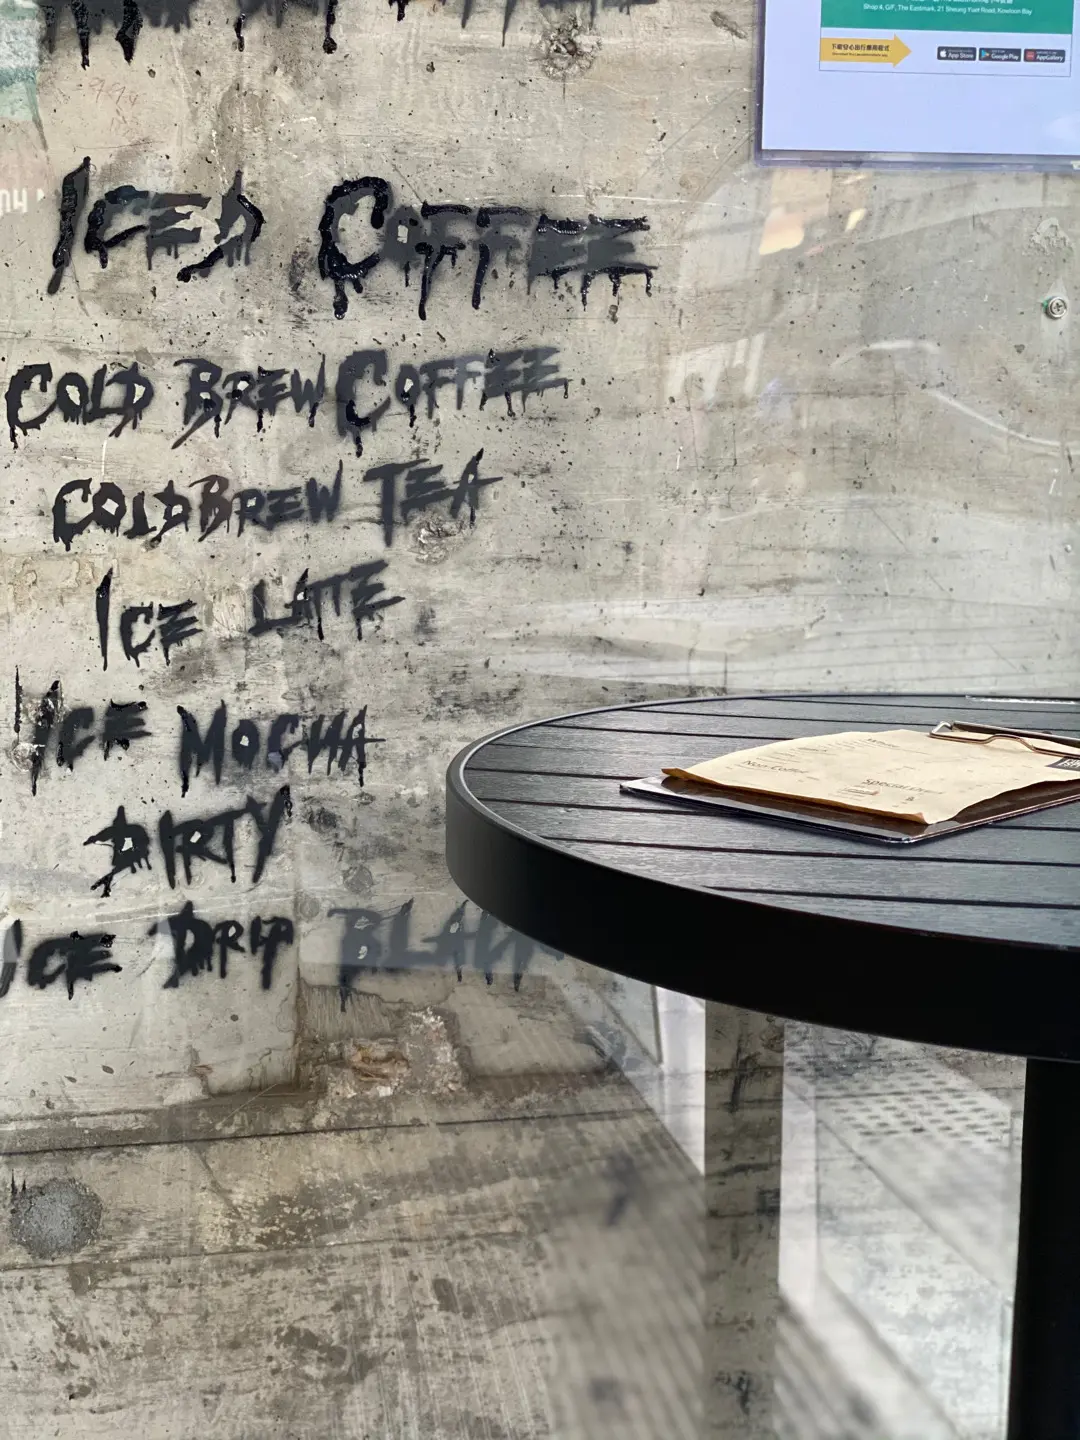 Shop 4, G/F, The Eastmark, 21 Sheung Yuet Road, Kowloon Bay
下載安心出行應用程式
App Store
Google Play
AppGallery
ICED COFFEE
COLD BREW COFFEE
COLD BREW TEA
ICE LATTE
ICE MOCHA
DIRTY
ICE DRIP BLACK
Non-Coffee
Special